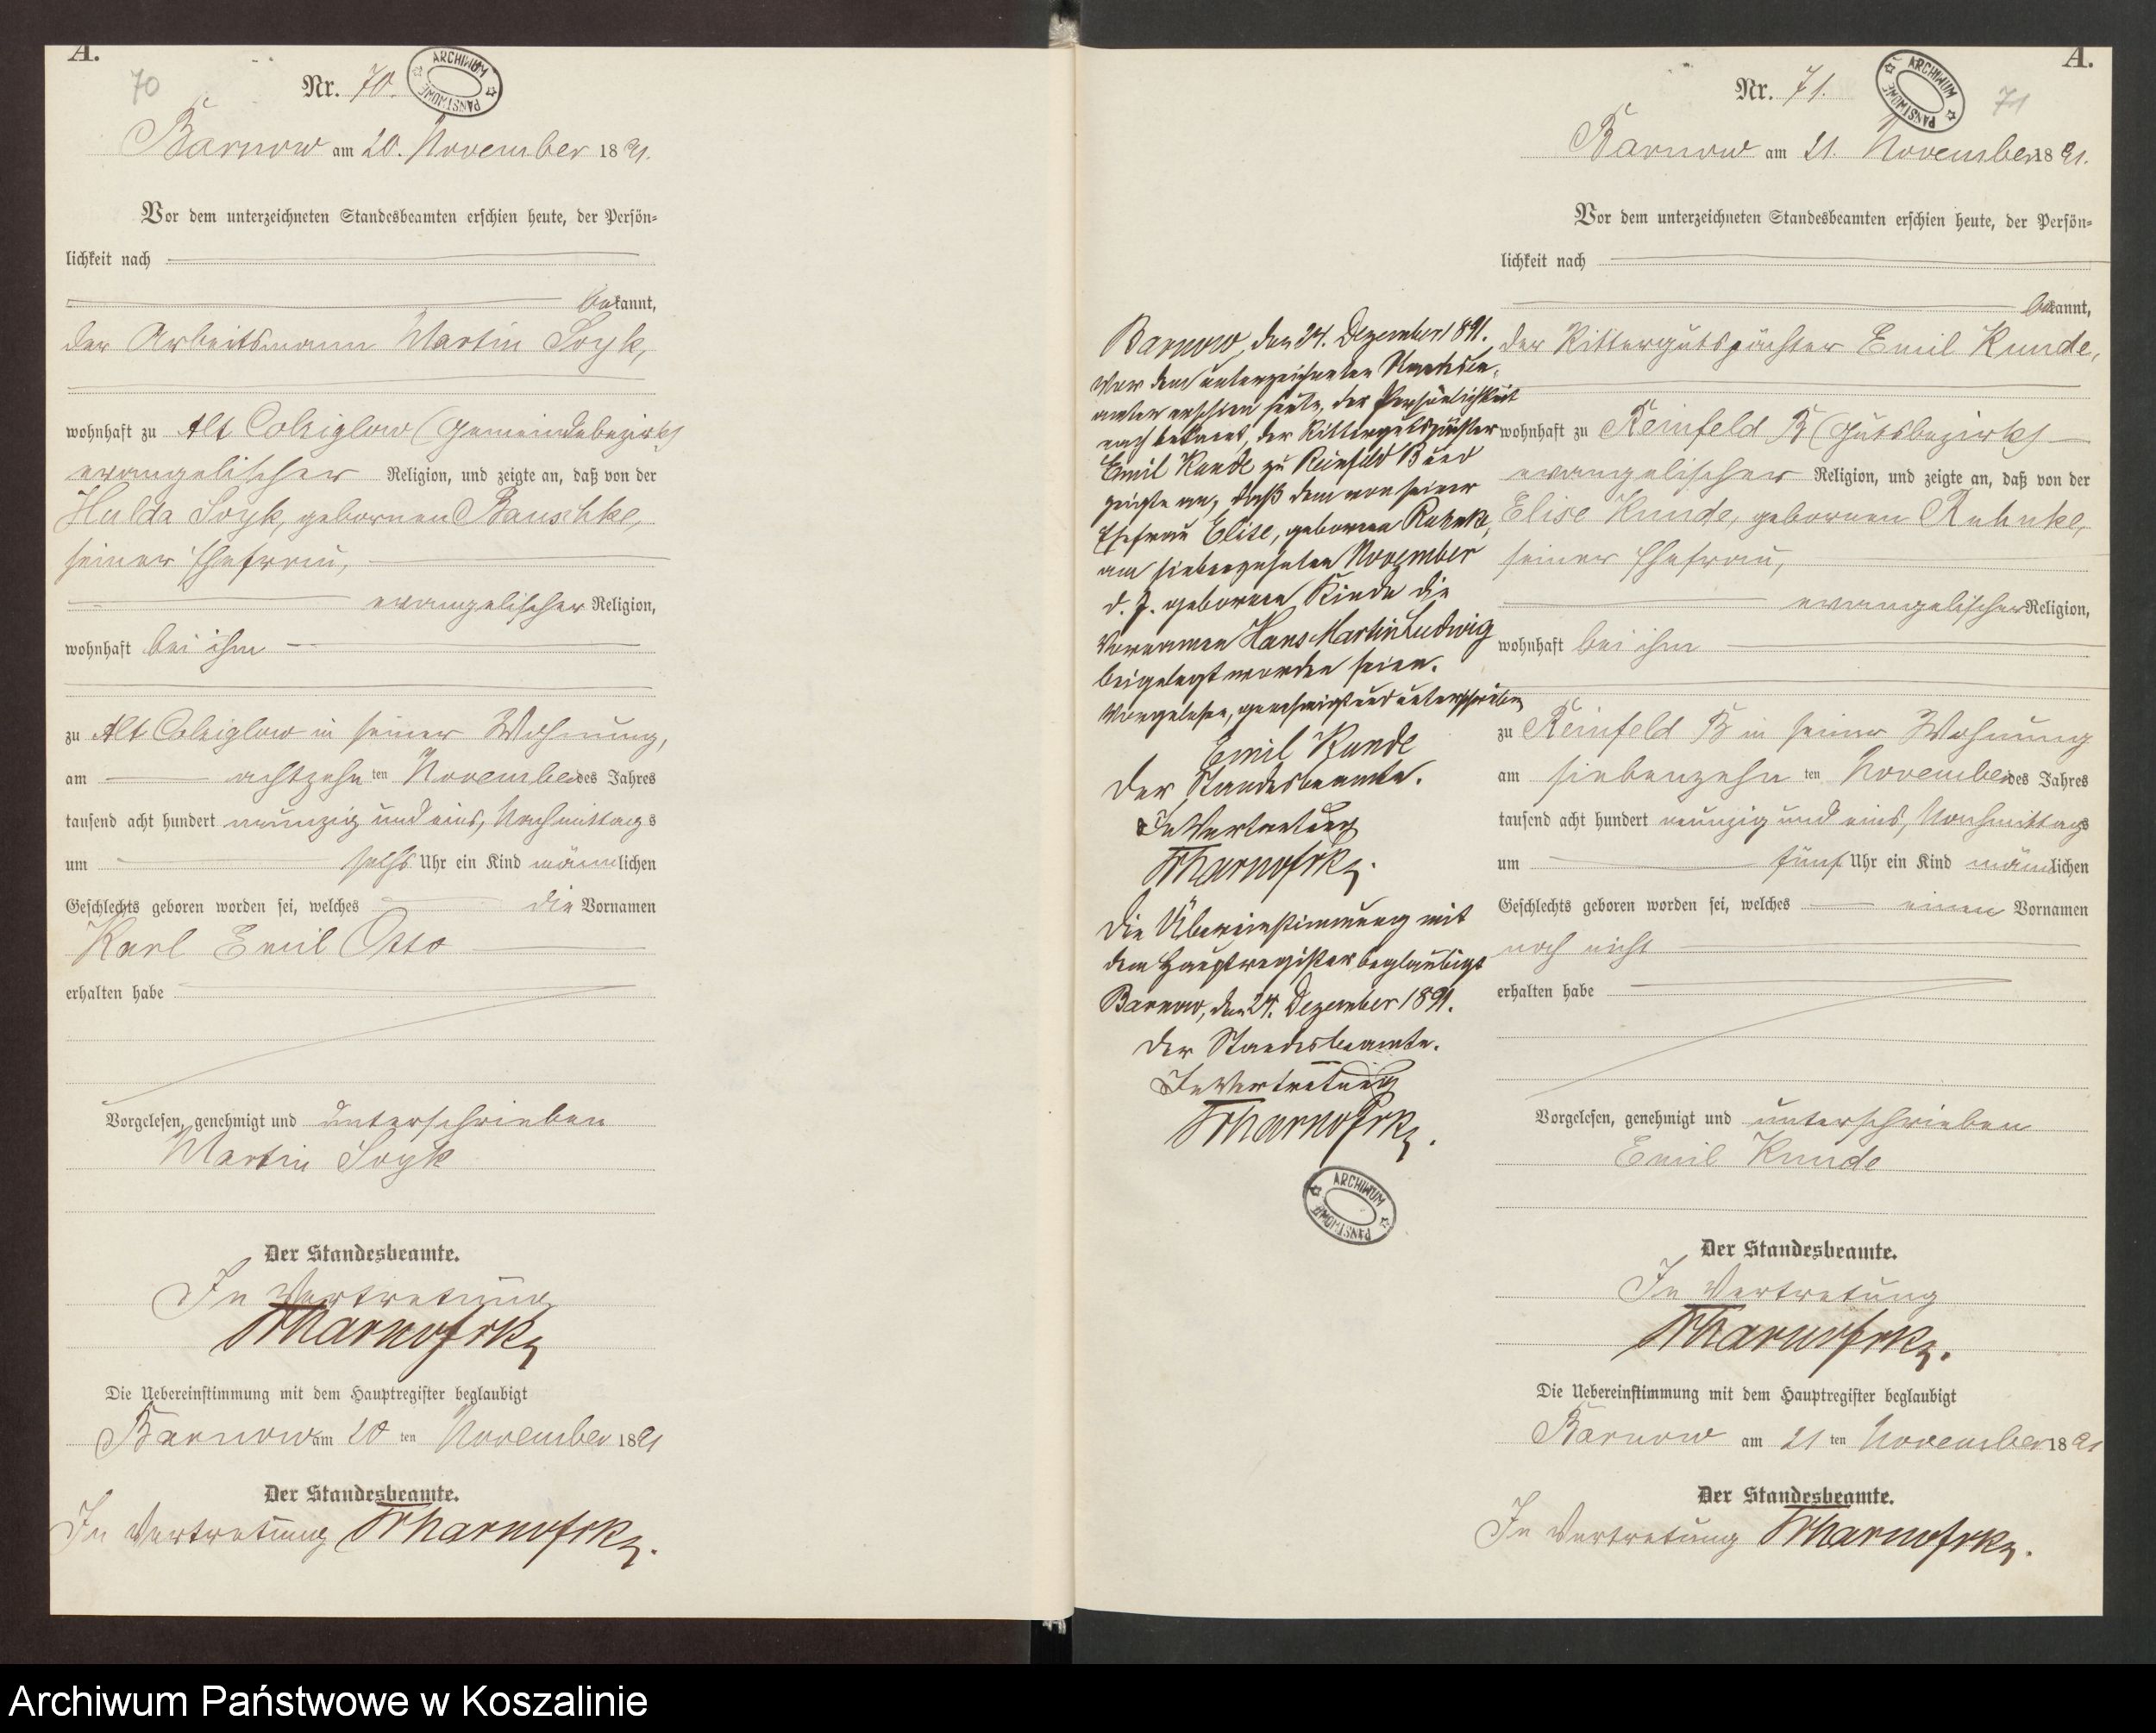 A.
70
Nr. 70.
ARCHIWUM PAŃSTWOWE
Barnow am 20. November 1891.
Vor dem unterzeichneten Standesbeamten erschien heute, der Persön-
lichkeit nach
bekannt,
der Arbeitsmann Martin Soyk,
wohnhaft zu Alt Colziglow (Gemeindebezirk)
evangelischer Religion, und zeigte an, daß von der
Hulda Soyk, gebornen Bauschke,
seiner Ehefrau,
evangelischer Religion,
wohnhaft bei ihm
zu Alt Colziglow in seiner Wohnung,
am achtzehn ten November des Jahres
tausend acht hundert neunzig und eins, Nachmittags
um sechs Uhr ein Kind männlichen
Geschlechts geboren worden sei, welches die Vornamen
Karl Emil Otto
erhalten habe
Vorgelesen, genehmigt und unterschrieben
Martin Soyk
Der Standesbeamte.
In Vertretung
Die Uebereinstimmung mit dem Hauptregister beglaubigt
Barnow am 20 ten November 1891
Der Standesbeamte.
In Vertretung
Barnow, den 24. Dezember 1891.
Vor dem unterzeichneten Standesbe-
amten erschien heute, der Persönlichkeit
nach bekannt, der Rittergutspächter
Emil Kunde zu Reinfeld B und
zeigte an, daß dem von seiner
Ehefrau Elise, gebornen Ruhnke,
am siebenzehnten November
d. J. gebornen Kinde die
Vornamen Hans Martin Ludwig
beigelegt worden seien.
Vorgelesen, genehmigt und unterschrieben
Emil Kunde
Der Standesbeamte.
In Vertretung
Die Übereinstimmung mit
dem Hauptregister beglaubigt
Barnow, den 24. Dezember 1891.
Der Standesbeamte.
In Vertretung
ARCHIWUM PAŃSTWOWE
A.
71
Nr. 71.
ARCHIWUM PAŃSTWOWE
Barnow am 21. November 1891.
Vor dem unterzeichneten Standesbeamten erschien heute, der Persön-
lichkeit nach
bekannt,
der Rittergutspächter Emil Kunde,
wohnhaft zu Reinfeld B (Gutsbezirk)
evangelischer Religion, und zeigte an, daß von der
Elise Kunde, gebornen Ruhnke,
seiner Ehefrau,
evangelischer Religion,
wohnhaft bei ihm
zu Reinfeld B in seiner Wohnung
am siebenzehn ten November des Jahres
tausend acht hundert neunzig und eins, Nachmittags
um fünf Uhr ein Kind männlichen
Geschlechts geboren worden sei, welches einen Vornamen
noch nicht
erhalten habe
Vorgelesen, genehmigt und unterschrieben
Emil Kunde
Der Standesbeamte.
In Vertretung
Die Uebereinstimmung mit dem Hauptregister beglaubigt
Barnow am 21 ten November 1891
Der Standesbeamte.
In Vertretung
Archiwum Państwowe w Koszalinie